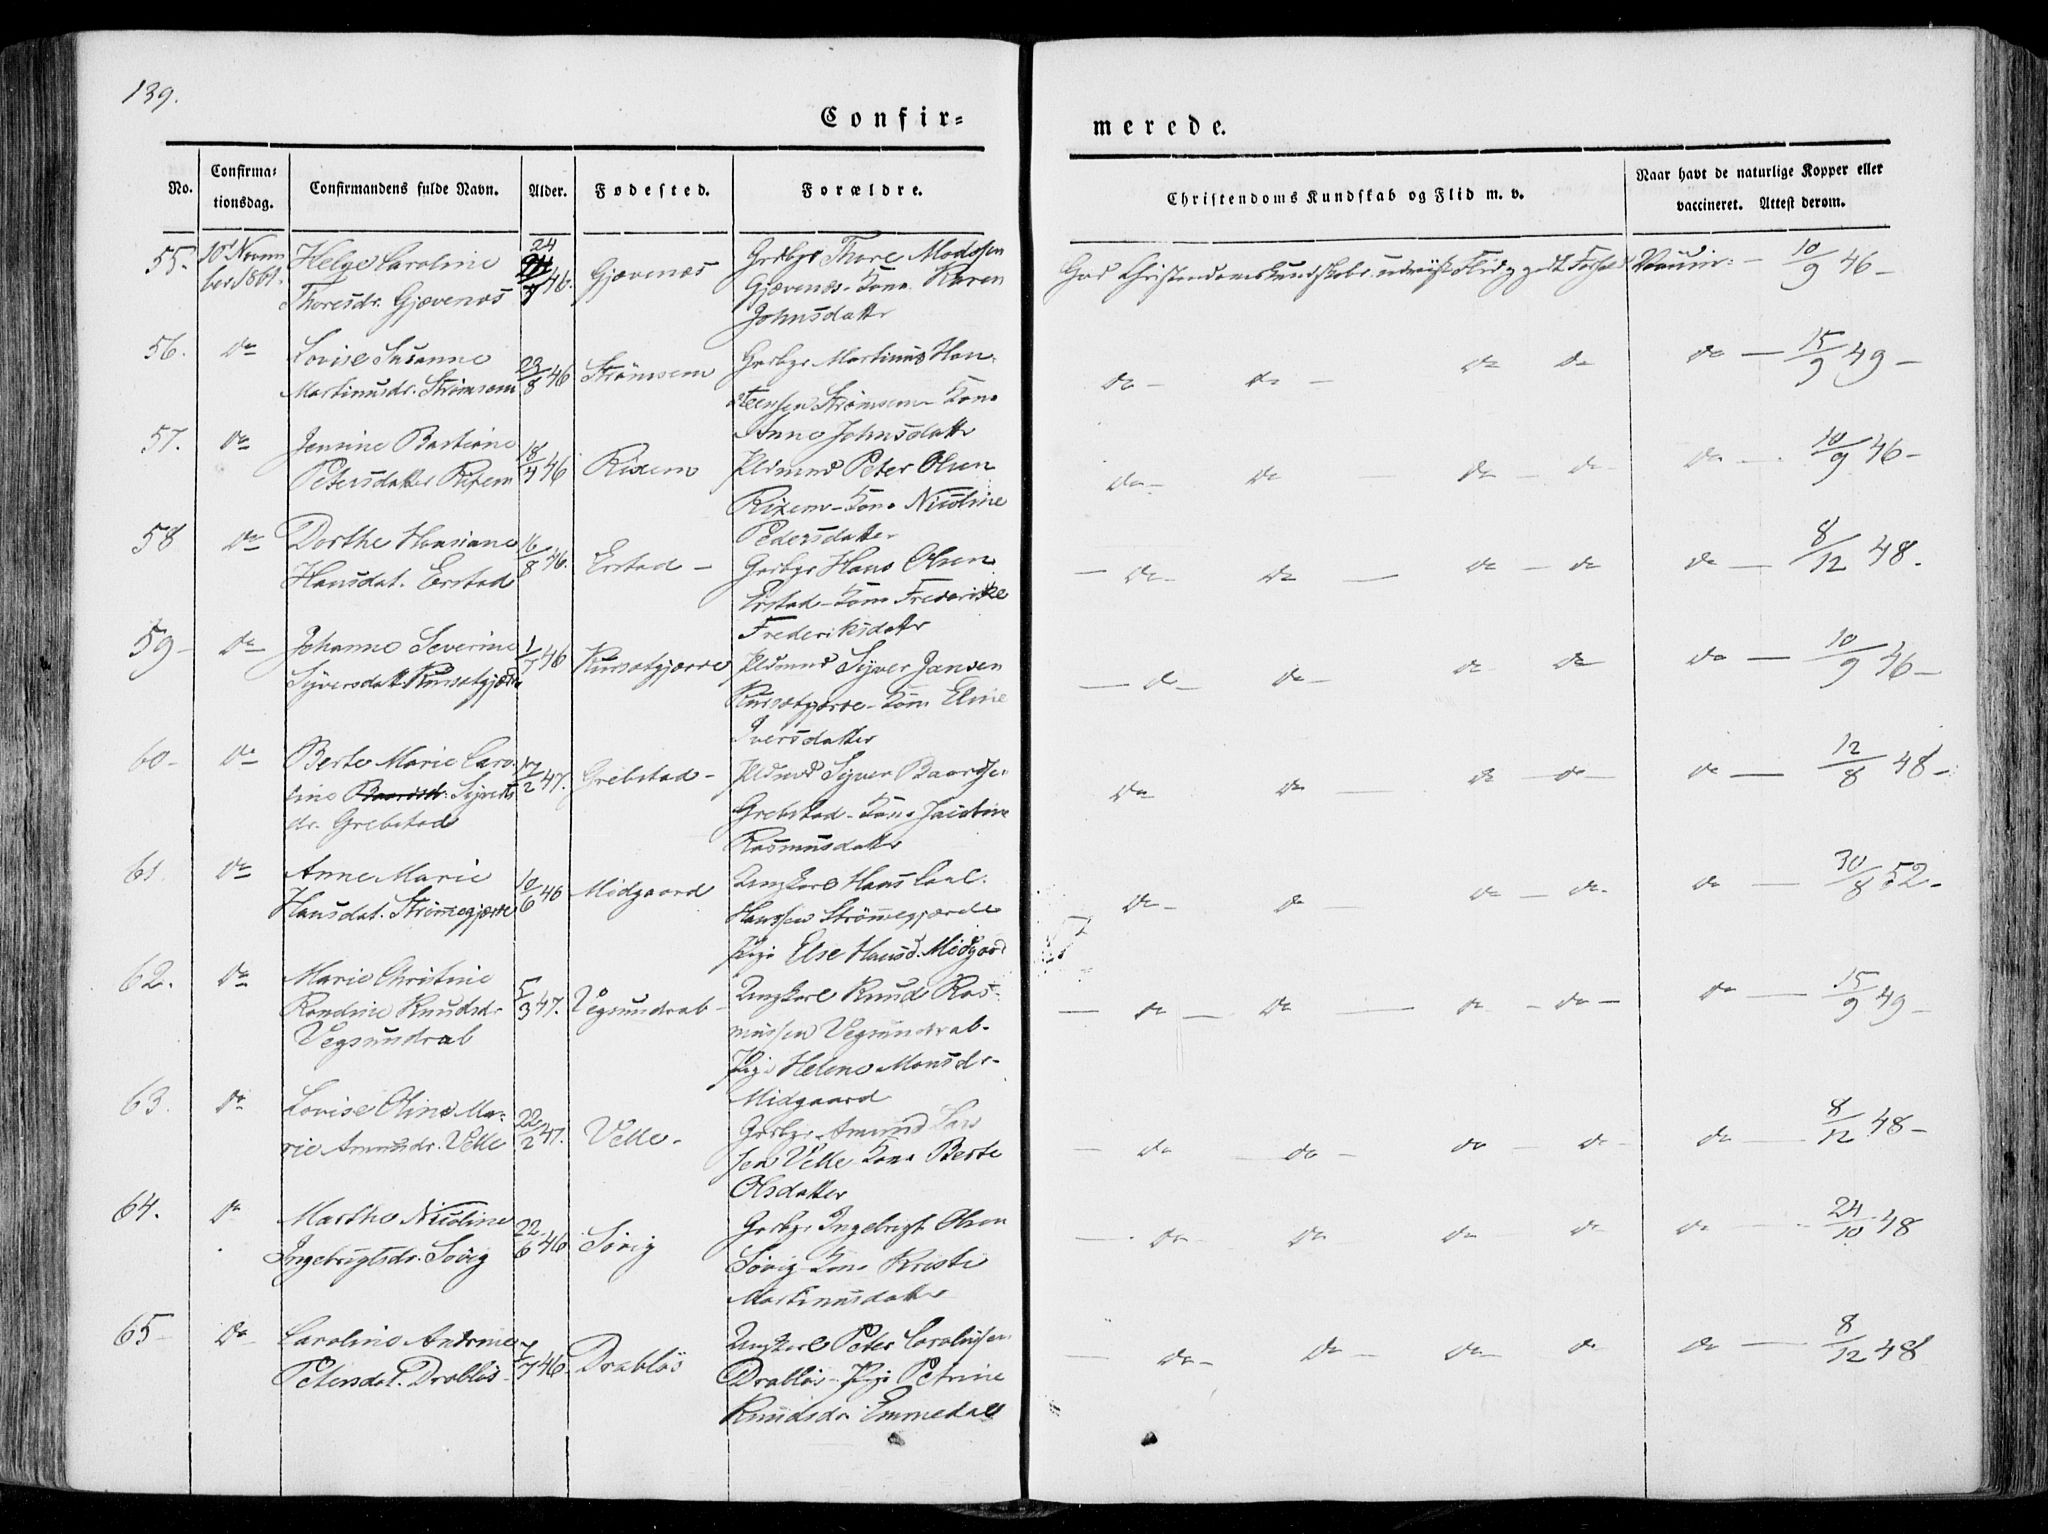 139.
Confir=
merede.
No.
Confirma=
tionsdag.
Confirmandens fulde Navn.
Alder.
Fødested.
Forældre.
Christendoms Kundskab og Flid m. v.
Naar havt de naturlige Kopper eller
vaccineret. Attest derom.
55. 10d Novem Helge Caroline 24 Gjævenæs Grdbgr Thore Madssen
ber 1861. Thoresdr. Gjævenæs 46. Gjævenes. Kone Karen
Johnsdattr
God Christendomskundskab, Flid og godt Forhold Vaccin. — 10/9 46 —
56. do Lovise Susanne 23/8 46 Strømsem Grdbgr Martinus Han-
Martinusdr. Strømsem steensen Strømsem Kone
Anne Johnsdattr
do — do — do do do — 15/9 49 —
57. do Jensine Bastiane 18/4 46 Rixem Pldmnd Peter Olsen
Petersdatter Rixem Rixem — Kone Nicoline
Pedersdatter
do — do — do — do do — 10/9 46 —
58 do Dorthe Hansiane 16/8 46. Erstad — Grdbgr Hans Olsen
Hansdat. Erstad Erstad — Kone Frederikke
Frederiksdattr
— do — do — do — do do — 8/12 48.
59 — do Johanne Severine 1/7 46 Kursætgjærde Pldmnd Syver Jansen
Syversdatt. Kursætgjærde Kursætgjærde — Kone Eline
Iversdatter
— do — do — do do do — 10/9 46 —
60 — do Berte Marie Caro- 17/2 47. Grebstad — Pldmnd Syver Baardsen
line Baardsdr. Syverts Grebstad — Kone Jacobine
dr. Grebstad Rasmusdattr
do do — do — do — do — 12/8 48 —
61. do Anne Marie 10/6 46 Midgaard Ungkarl Hans Carl
Hansdat. Strømegjærde Hanssen Strømegjærde
Pige Else Hansd. Midgaard
do — do — do — do — do — 30/8 52 —
62. do Marie Christine 5/3 47. Vegsundrab — Ungkarl Knud Ras-
Rondine Knudsdr. mussen Vegsundrab —
Vegsundrab Pige Helene Monsdr —
Midgaard
— do — do — do — do — do — 15/9 49 —
63. do Lovise Oline Ma- 22/2 47. Velle. Grdbgr Amund Lar
rie Amundsdr. Velle sen Velle Kone Berte
Olsdatter
— do — do — do — do — do — 8/12 48 —
64. do Marthe Nicoline 22/6 46 Søvig Grdbgr Ingebrigt Olsen
Ingebrigtsdr. Søvig Søvig — Kone Kristi
Martinusdatter
— do — do — do — do do — 24/10 48
65 — do Caroline Antrine 7/7 46. Drabløs Ungkarl Peter Carolussen
Petersdat. Drabløs — Drabløs — Pige Petrine
Knudsdr Emmedal
— do — do — do — do do — 8/12 48